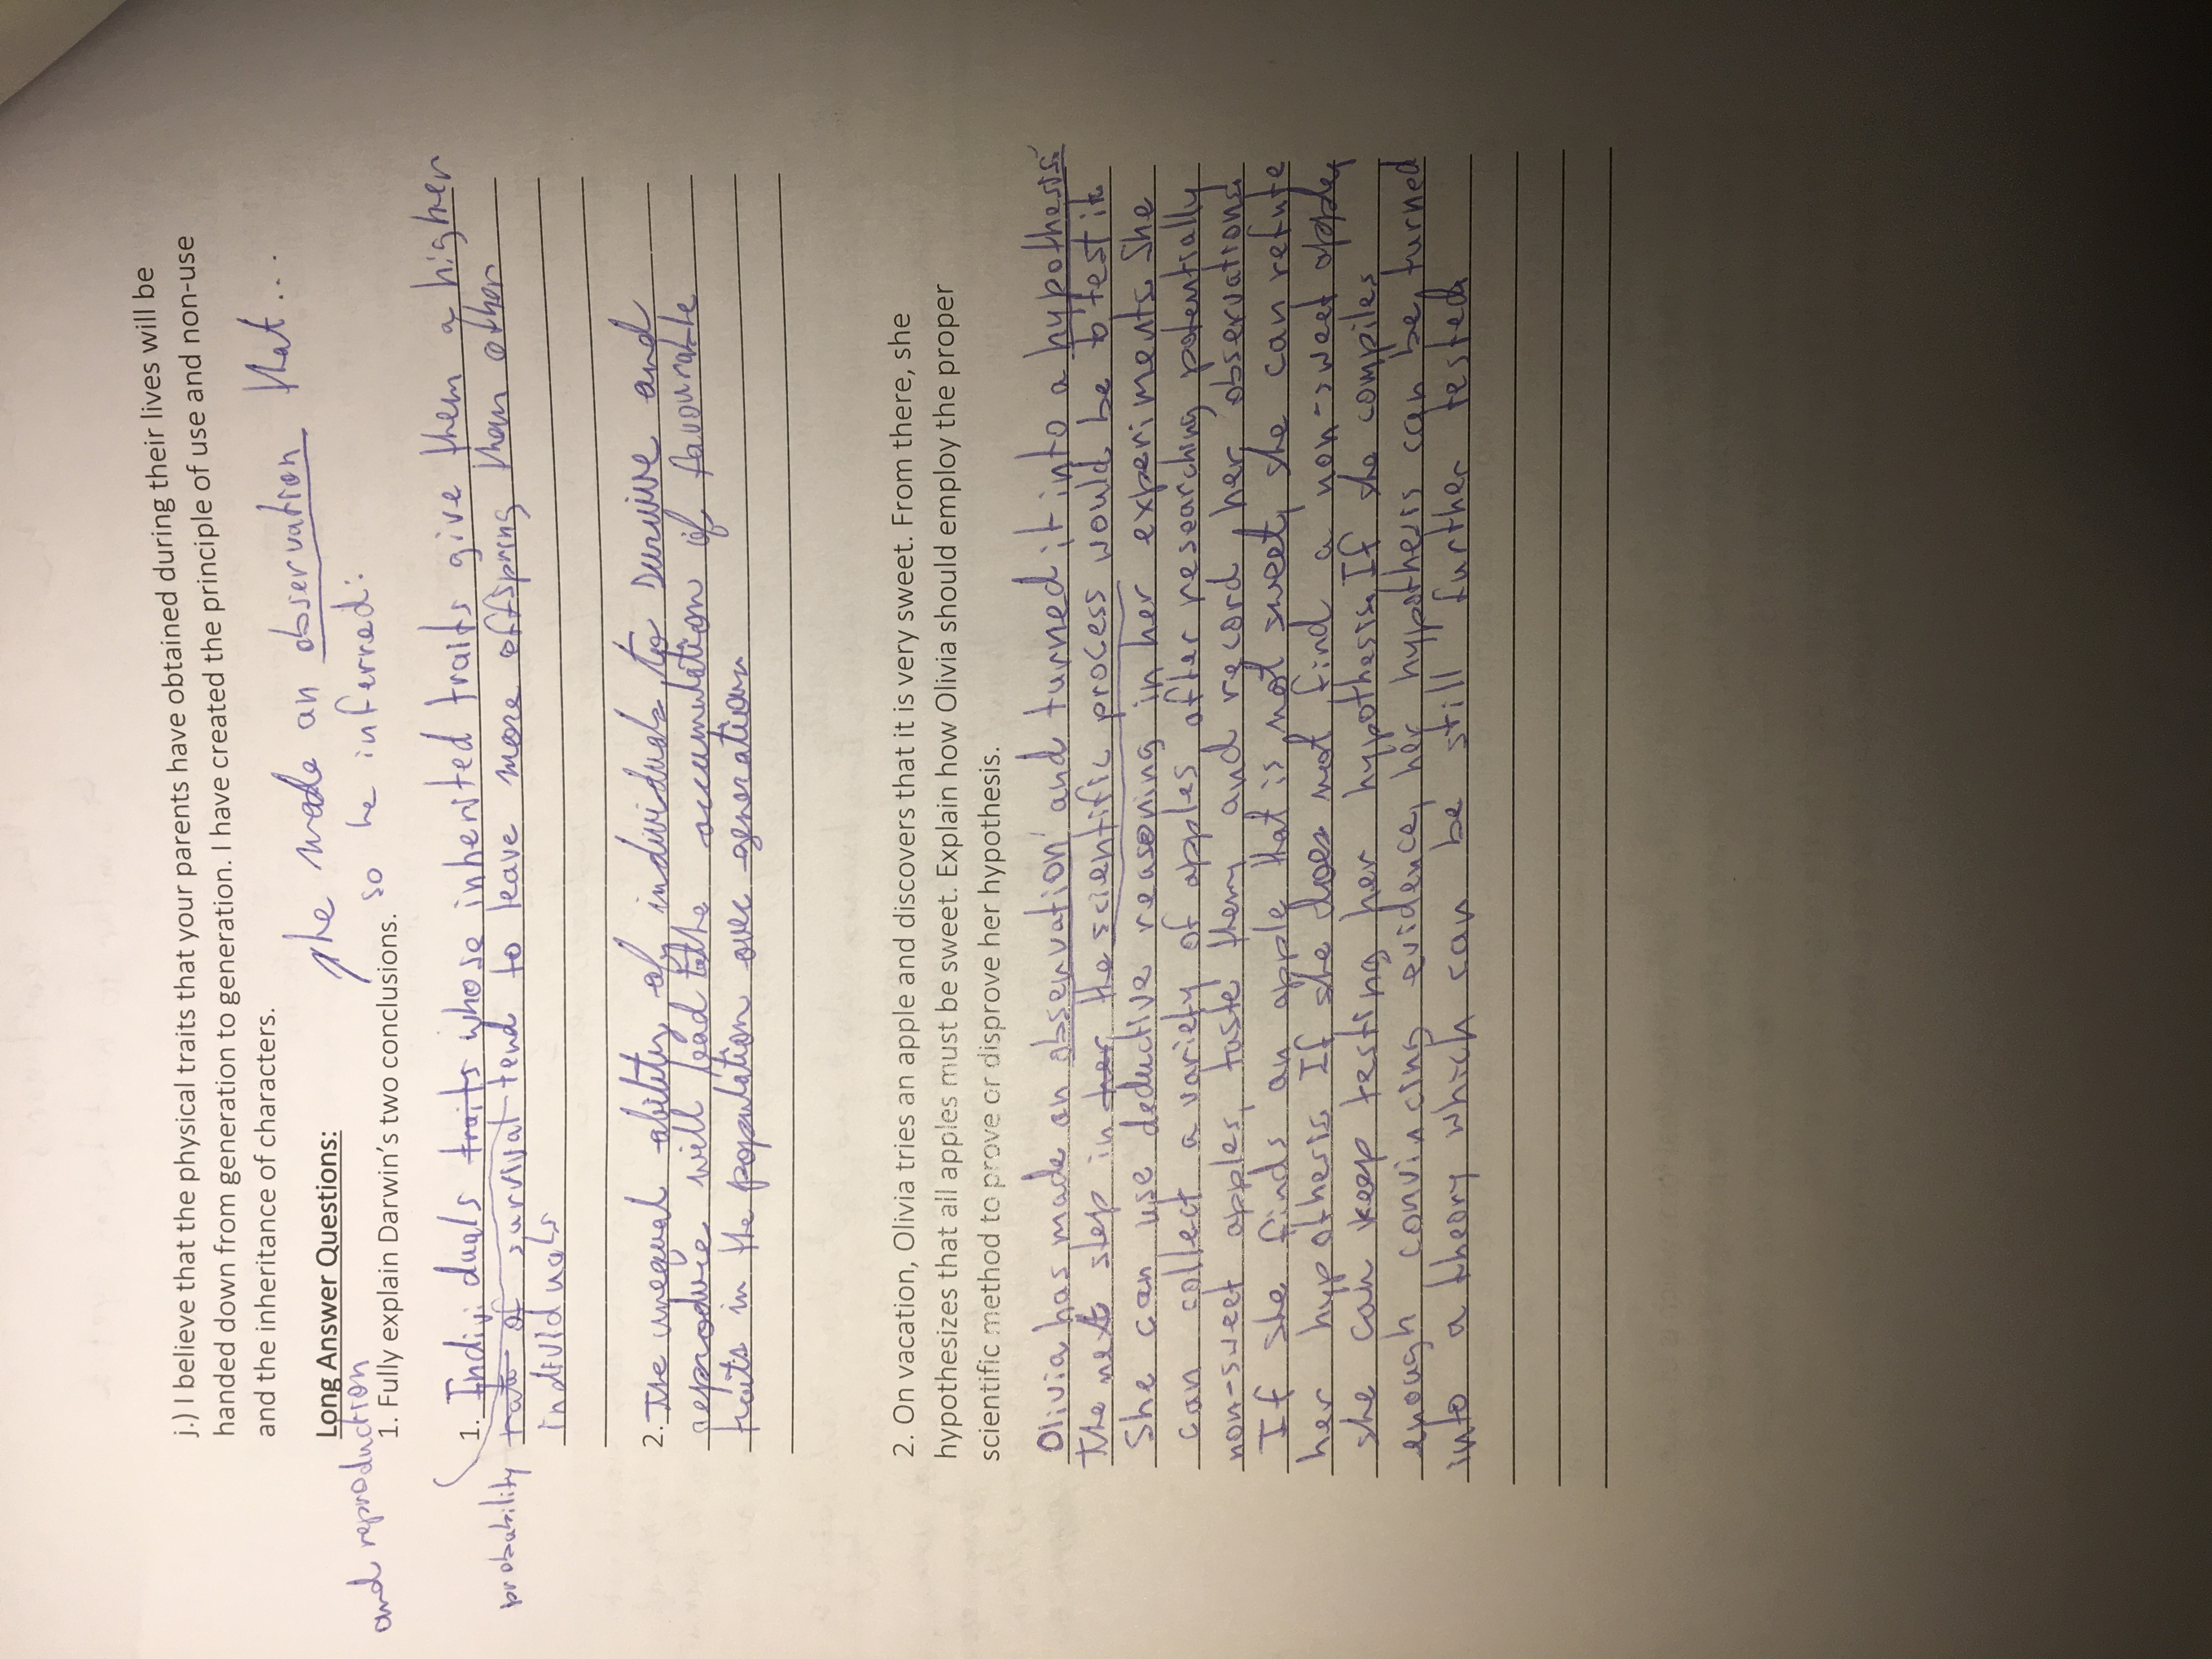 j.) I believe that the physical traits that your parents have obtained during their lives will be
handed down from generation to generation. I have created the principle of use and non-use
and the inheritance of characters.
he made an observation that...
Long Answer Questions:
and reproduction
1. Fully explain Darwin's two conclusions. so he inferred:
1. Individuals traits whose inherited traits give them a higher
probability rate of survival tend to leave more offspring than other
individuals
2. The unequal ability of individuals to survive and
reproduce will lead to the accumulation of favourable
traits in the population over generations
2. On vacation, Olivia tries an apple and discovers that it is very sweet. From there, she
hypothesizes that all apples must be sweet. Explain how Olivia should employ the proper
scientific method to prove or disprove her hypothesis.
Olivia has made an observation and turned it into a hypothesis
The next step in her the scientific process would be to test it.
She can use deductive reasoning in her experiments. She
can collect a variety of apples after researching potentially
non-sweet apples, taste them, and record her observations
If she finds an apple that is not sweet, she can refute
her hypothesis. If she does not find a non-sweet apple,
she can keep testing her hypothesis. If she compiles
enough convincing evidence, her hypothesis can be turned
into a theory which can be still further tested